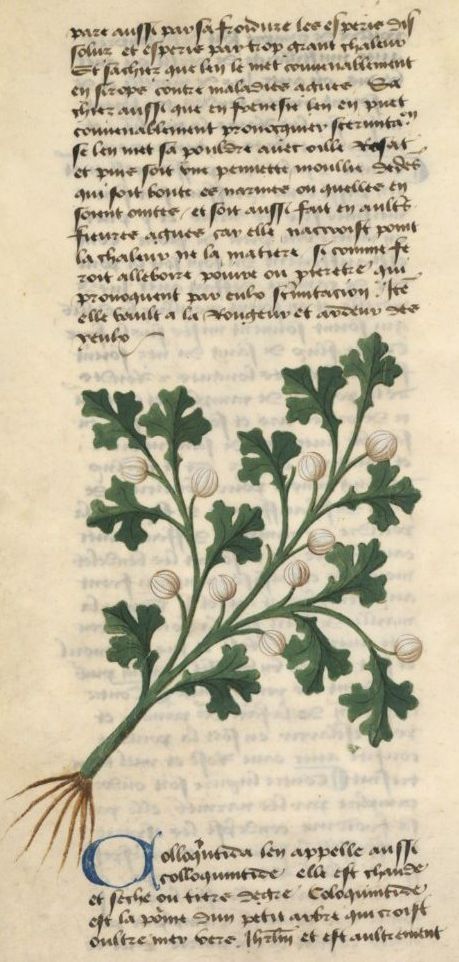 pare aussi par sa froidure les esperis dis
solux et esperis par trop grant chaleur
Et sachiez que len le met convenablement
en sirops contre maladies agues Sa
chiez aussi que en frenesie len en puet
convenablement provocquier
se len met sa pouldre avec oille Rosat
et puis soit une penniette moullie dedes
qui soit boute es narines ou quelles en
soient ointes et soit aussi fait en aultēs
fievres agues car elle naccroist point
la chaleur ne la matiere si comme fe
roit alleboire poivre ou pieretre qui
provoquent par eulx Itē
elle vault a la Rougeur et ardeur des
yeulx
Colloqūtida len appelle aussi
colloquintide elle est chaude
et seche ou tiers degre Coloquintide
est la pōme dun petit arbre qui croist
oultre mer vers Jhrlm et est aultrement